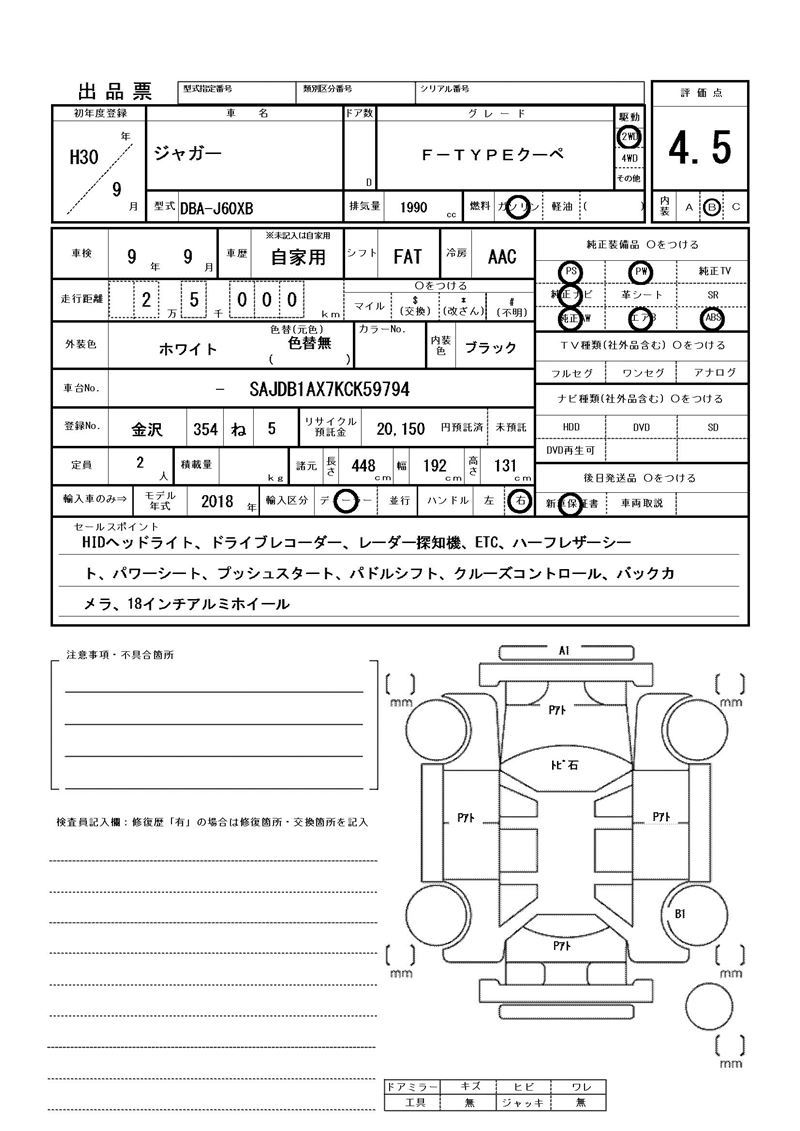 出品票
型式指定番号 類別区分番号 シリアル番号
評価点
4.5
内装 A B C
初年度登録 車名 ドア数 グレード 駆動
H30 年 9 月 ジャガー D F-TYPEクーペ
2WD
4WD
その他
型式 DBA-J60XB 排気量 1990 cc 燃料 ガソリン 軽油 ( )
車検 9 年 9 月 車歴 ※未記入は自家用 自家用 シフト FAT 冷房 AAC
走行距離 2 万 5 千 0 0 0 km 〇をつける
マイル $(交換) *(改ざん) #(不明)
外装色 ホワイト 色替(元色) 色替無 ( ) カラーNo. 内装色 ブラック
車台No. - SAJDB1AX7KCK59794
登録No. 金沢 354 ね 5 リサイクル預託金 20,150 円預託済 未預託
定員 2 人 積載量 kg 諸元 長さ 448 cm 幅 192 cm 高さ 131 cm
輸入車のみ⇒ モデル年式 2018 年 輸入区分 ディーラー 並行 ハンドル 左 右
純正装備品 〇をつける
PS PW 純正TV
純正ナビ 革シート SR
純正AW エアB ABS
TV種類(社外品含む) 〇をつける
フルセグ ワンセグ アナログ
ナビ種類(社外品含む) 〇をつける
HDD DVD SD
DVD再生可
後日発送品 〇をつける
新車保証書 車両取説
セールスポイント
HIDヘッドライト、ドライブレコーダー、レーダー探知機、ETC、ハーフレザーシー
ト、パワーシート、プッシュスタート、パドルシフト、クルーズコントロール、バックカ
メラ、18インチアルミホイール
注意事項・不具合箇所
検査員記入欄：修復歴「有」の場合は修復箇所・交換箇所を記入
A1
mm mm
Pｱﾄ
ﾄﾋﾞ石
Pｱﾄ Pｱﾄ
B1
Pｱﾄ
mm mm
mm
ドアミラー キズ ヒビ ワレ
工具 無 ジャッキ 無